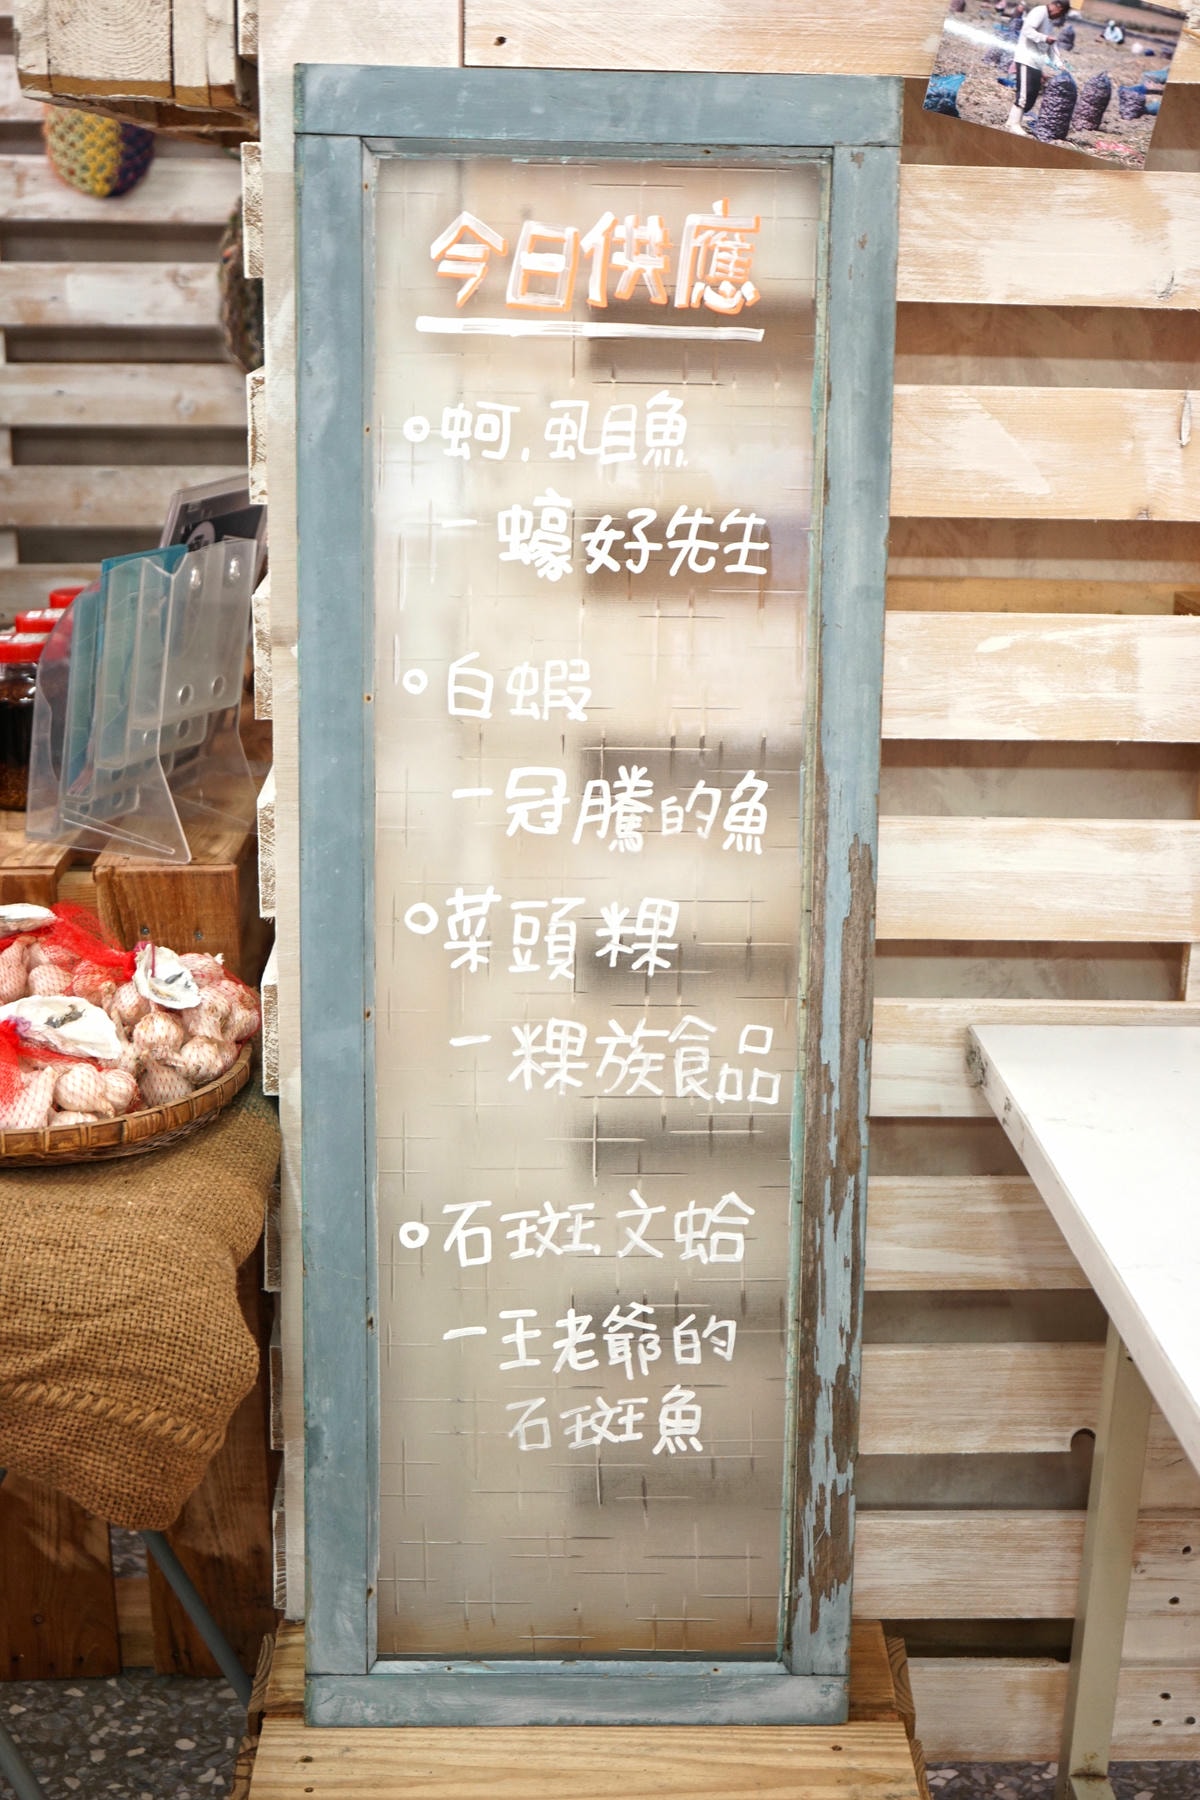 今日供應
蚵,虱目魚
-蠔好先生
白蝦
-冠騰的魚
菜頭粿
-粿族食品
石斑文蛤
-王老爺的
石斑魚